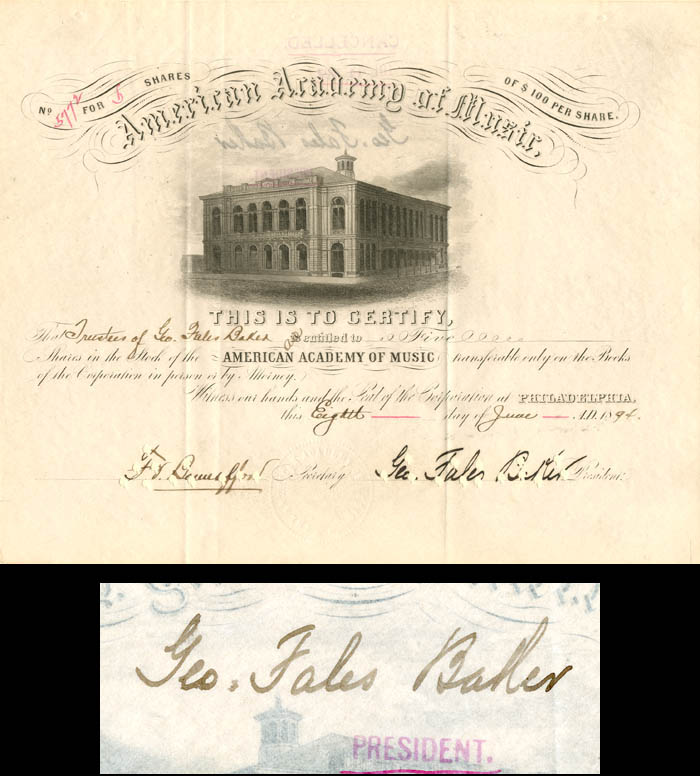 CANCELLED.
No 5772 FOR 5 SHARES
OF $100 PER SHARE.
American Academy of Music.
Geo. Fales Baker
THIS IS TO CERTIFY,
That Trustees of Geo. Fales Baker are is entitled to Five
Shares in the Stock of the AMERICAN ACADEMY OF MUSIC transferable only on the Books
of the Corporation in person or by Attorney.
Witness our hands and the Seal of the Corporation at PHILADELPHIA,
this Eighth day of June A.D. 1894.
Secretary Geo. Fales Baker President
Geo. Fales Baker
PRESIDENT.